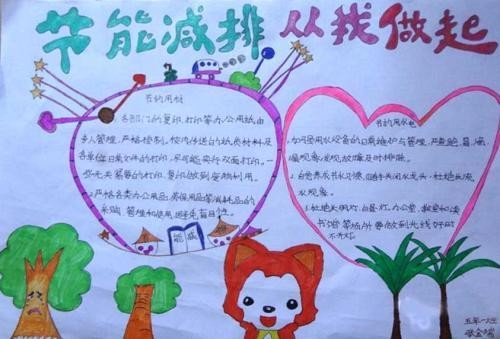 节能减排 从我做起
节约用材
1.各部门的复印、打印等办公用纸由
专人管理,严格控制。校内传送的纸质材料及
各单位日常文件的打印,尽可能实行双面打印。一
些无关紧要的打印、复印做到废物利用。
2.严格各类办公用品、劳保用品等减耗品的
采购、管理和使用,避免盲目性。
能 减
节约用水电
1.加强用水设备的日常维护与管理,严查跑、冒、滴、
漏现象,发现故障及时排除。
2.自觉养成节水习惯,随手关闭水龙头,杜绝长流
水现象。
3.杜绝长明灯、白昼灯,办公室、教室和读
书馆等场所要做到光线好时
不开灯。
五年一班